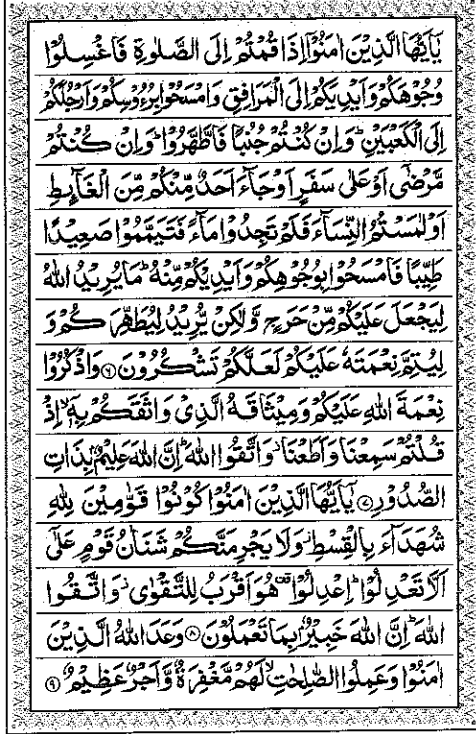 يٰۤاَيُّهَا الَّذِيْنَ اٰمَنُوْۤا اِذَا قُمْتُمْ اِلَى الصَّلٰوةِ فَاغْسِلُوْا
وُجُوْهَكُمْ وَاَيْدِيَكُمْ اِلَى الْمَرَافِقِ وَامْسَحُوْا بِرُءُوْسِكُمْ وَاَرْجُلَكُمْ
اِلَى الْكَعْبَيْنِ ؕ وَاِنْ كُنْتُمْ جُنُبًا فَاطَّهَّرُوْا ؕ وَاِنْ كُنْتُمْ
مَّرْضٰۤى اَوْ عَلٰى سَفَرٍ اَوْ جَآءَ اَحَدٌ مِّنْكُمْ مِّنَ الْغَآئِطِ
اَوْ لٰمَسْتُمُ النِّسَآءَ فَلَمْ تَجِدُوْا مَآءً فَتَيَمَّمُوْا صَعِيْدًا
طَيِّبًا فَامْسَحُوْا بِوُجُوْهِكُمْ وَاَيْدِيْكُمْ مِّنْهُ ؕ مَا يُرِيْدُ اللّٰهُ
لِيَجْعَلَ عَلَيْكُمْ مِّنْ حَرَجٍ وَّلٰكِنْ يُّرِيْدُ لِيُطَهِّرَكُمْ وَ
لِيُتِمَّ نِعْمَتَهٗ عَلَيْكُمْ لَعَلَّكُمْ تَشْكُرُوْنَ ۝۶ وَاذْكُرُوْا
نِعْمَةَ اللّٰهِ عَلَيْكُمْ وَمِيْثَاقَهُ الَّذِيْ وَاثَقَكُمْ بِهٖۤ ۙ اِذْ
قُلْتُمْ سَمِعْنَا وَاَطَعْنَا ۫ وَاتَّقُوا اللّٰهَ ؕ اِنَّ اللّٰهَ عَلِيْمٌۢ بِذَاتِ
الصُّدُوْرِ ۝۷ يٰۤاَيُّهَا الَّذِيْنَ اٰمَنُوْا كُوْنُوْا قَوّٰمِيْنَ لِلّٰهِ
شُهَدَآءَ بِالْقِسْطِ ۫ وَلَا يَجْرِمَنَّكُمْ شَنَاٰنُ قَوْمٍ عَلٰۤى
اَلَّا تَعْدِلُوْا ؕ اِعْدِلُوْا ۟ هُوَ اَقْرَبُ لِلتَّقْوٰى ۫ وَاتَّقُوا
اللّٰهَ ؕ اِنَّ اللّٰهَ خَبِيْرٌۢ بِمَا تَعْمَلُوْنَ ۝۸ وَعَدَ اللّٰهُ الَّذِيْنَ
اٰمَنُوْا وَعَمِلُوا الصّٰلِحٰتِ ۙ لَهُمْ مَّغْفِرَةٌ وَّاَجْرٌ عَظِيْمٌ ۝۹